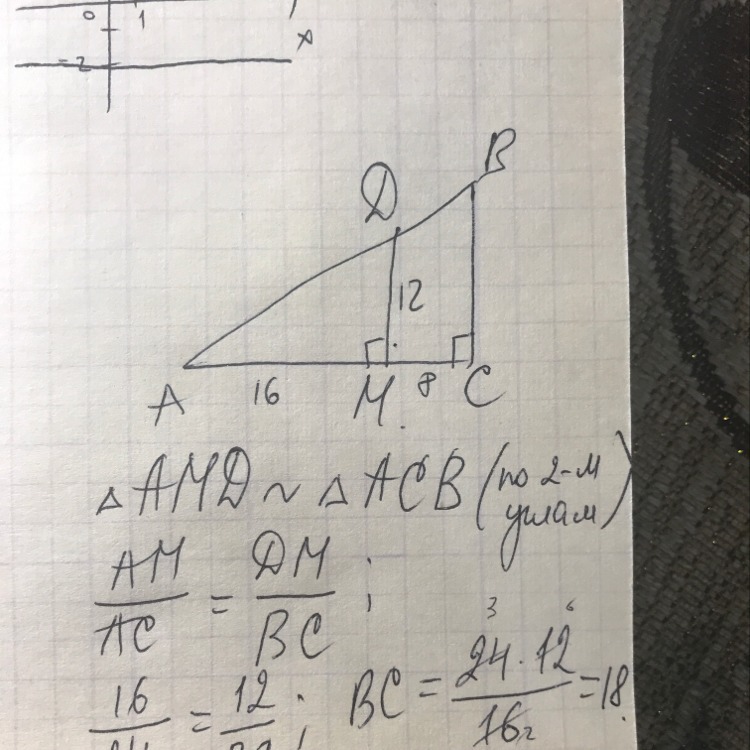 0 1
x
-2
B
D
12
A 16 M 8 C
△AMD ~ △ACB (по 2-м углам)
AM/AC = DM/BC ;
16/24 = 12/BC ; BC = 24·12/16 = 18.
3 6
2